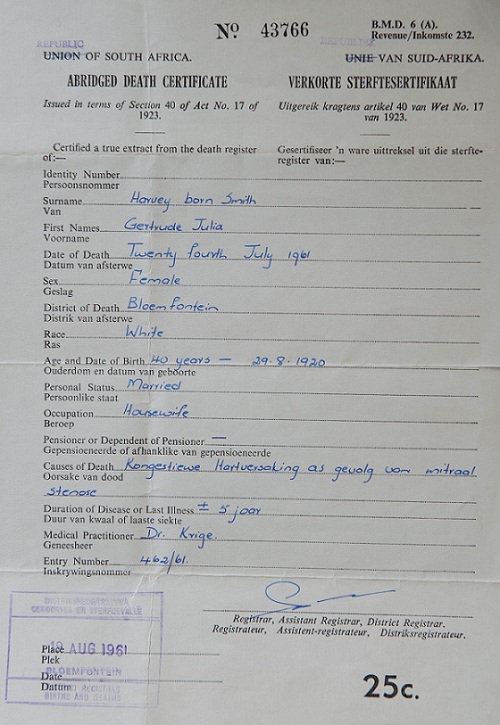 No 43766
B.M.D. 6 (A).
Revenue/Inkomste 232.
REPUBLIC
UNION OF SOUTH AFRICA.
UNIE VAN SUID-AFRIKA.
ABRIDGED DEATH CERTIFICATE
VERKORTE STERFTESERTIFIKAAT
Issued in terms of Section 40 of Act No. 17 of
1923.
Uitgereik kragtens artikel 40 van Wet No. 17
van 1923.
Certified a true extract from the death register
of:—
Gesertifiseer 'n ware uittreksel uit die sterfte-
register van:—
Identity Number
Persoonsnommer
Surname Harvey born Smith
Van
First Names Gertrude Julia
Voorname
Date of Death Twenty fourth July 1961
Datum van afsterwe
Sex Female
Geslag
District of Death Bloemfontein
Distrik van afsterwe
Race White
Ras
Age and Date of Birth 40 years — 29.8.1920
Ouderdom en datum van geboorte
Personal Status Married
Persoonlike staat
Occupation Housewife
Beroep
Pensioner or Dependent of Pensioner —
Gepensioeneerde of afhanklike van gepensioeneerde
Causes of Death Kongestiewe Hartversaking as gevolg van mitraal
Oorsake van dood
stenose
Duration of Disease or Last Illness ± 5 jaar
Duur van kwaal of laaste siekte
Medical Practitioner Dr. Krige.
Geneesheer
Entry Number 462/61.
Inskrywingsnommer
Registrar, Assistant Registrar, District Registrar.
Registrateur, Assistent-registrateur, Distriksregistrateur.
GEBOORTES EN STERFGEVALLE
Place AUG 1961
Plek
BLOEMFONTEIN
Date
Datum
BIRTHS AND DEATHS
25c.